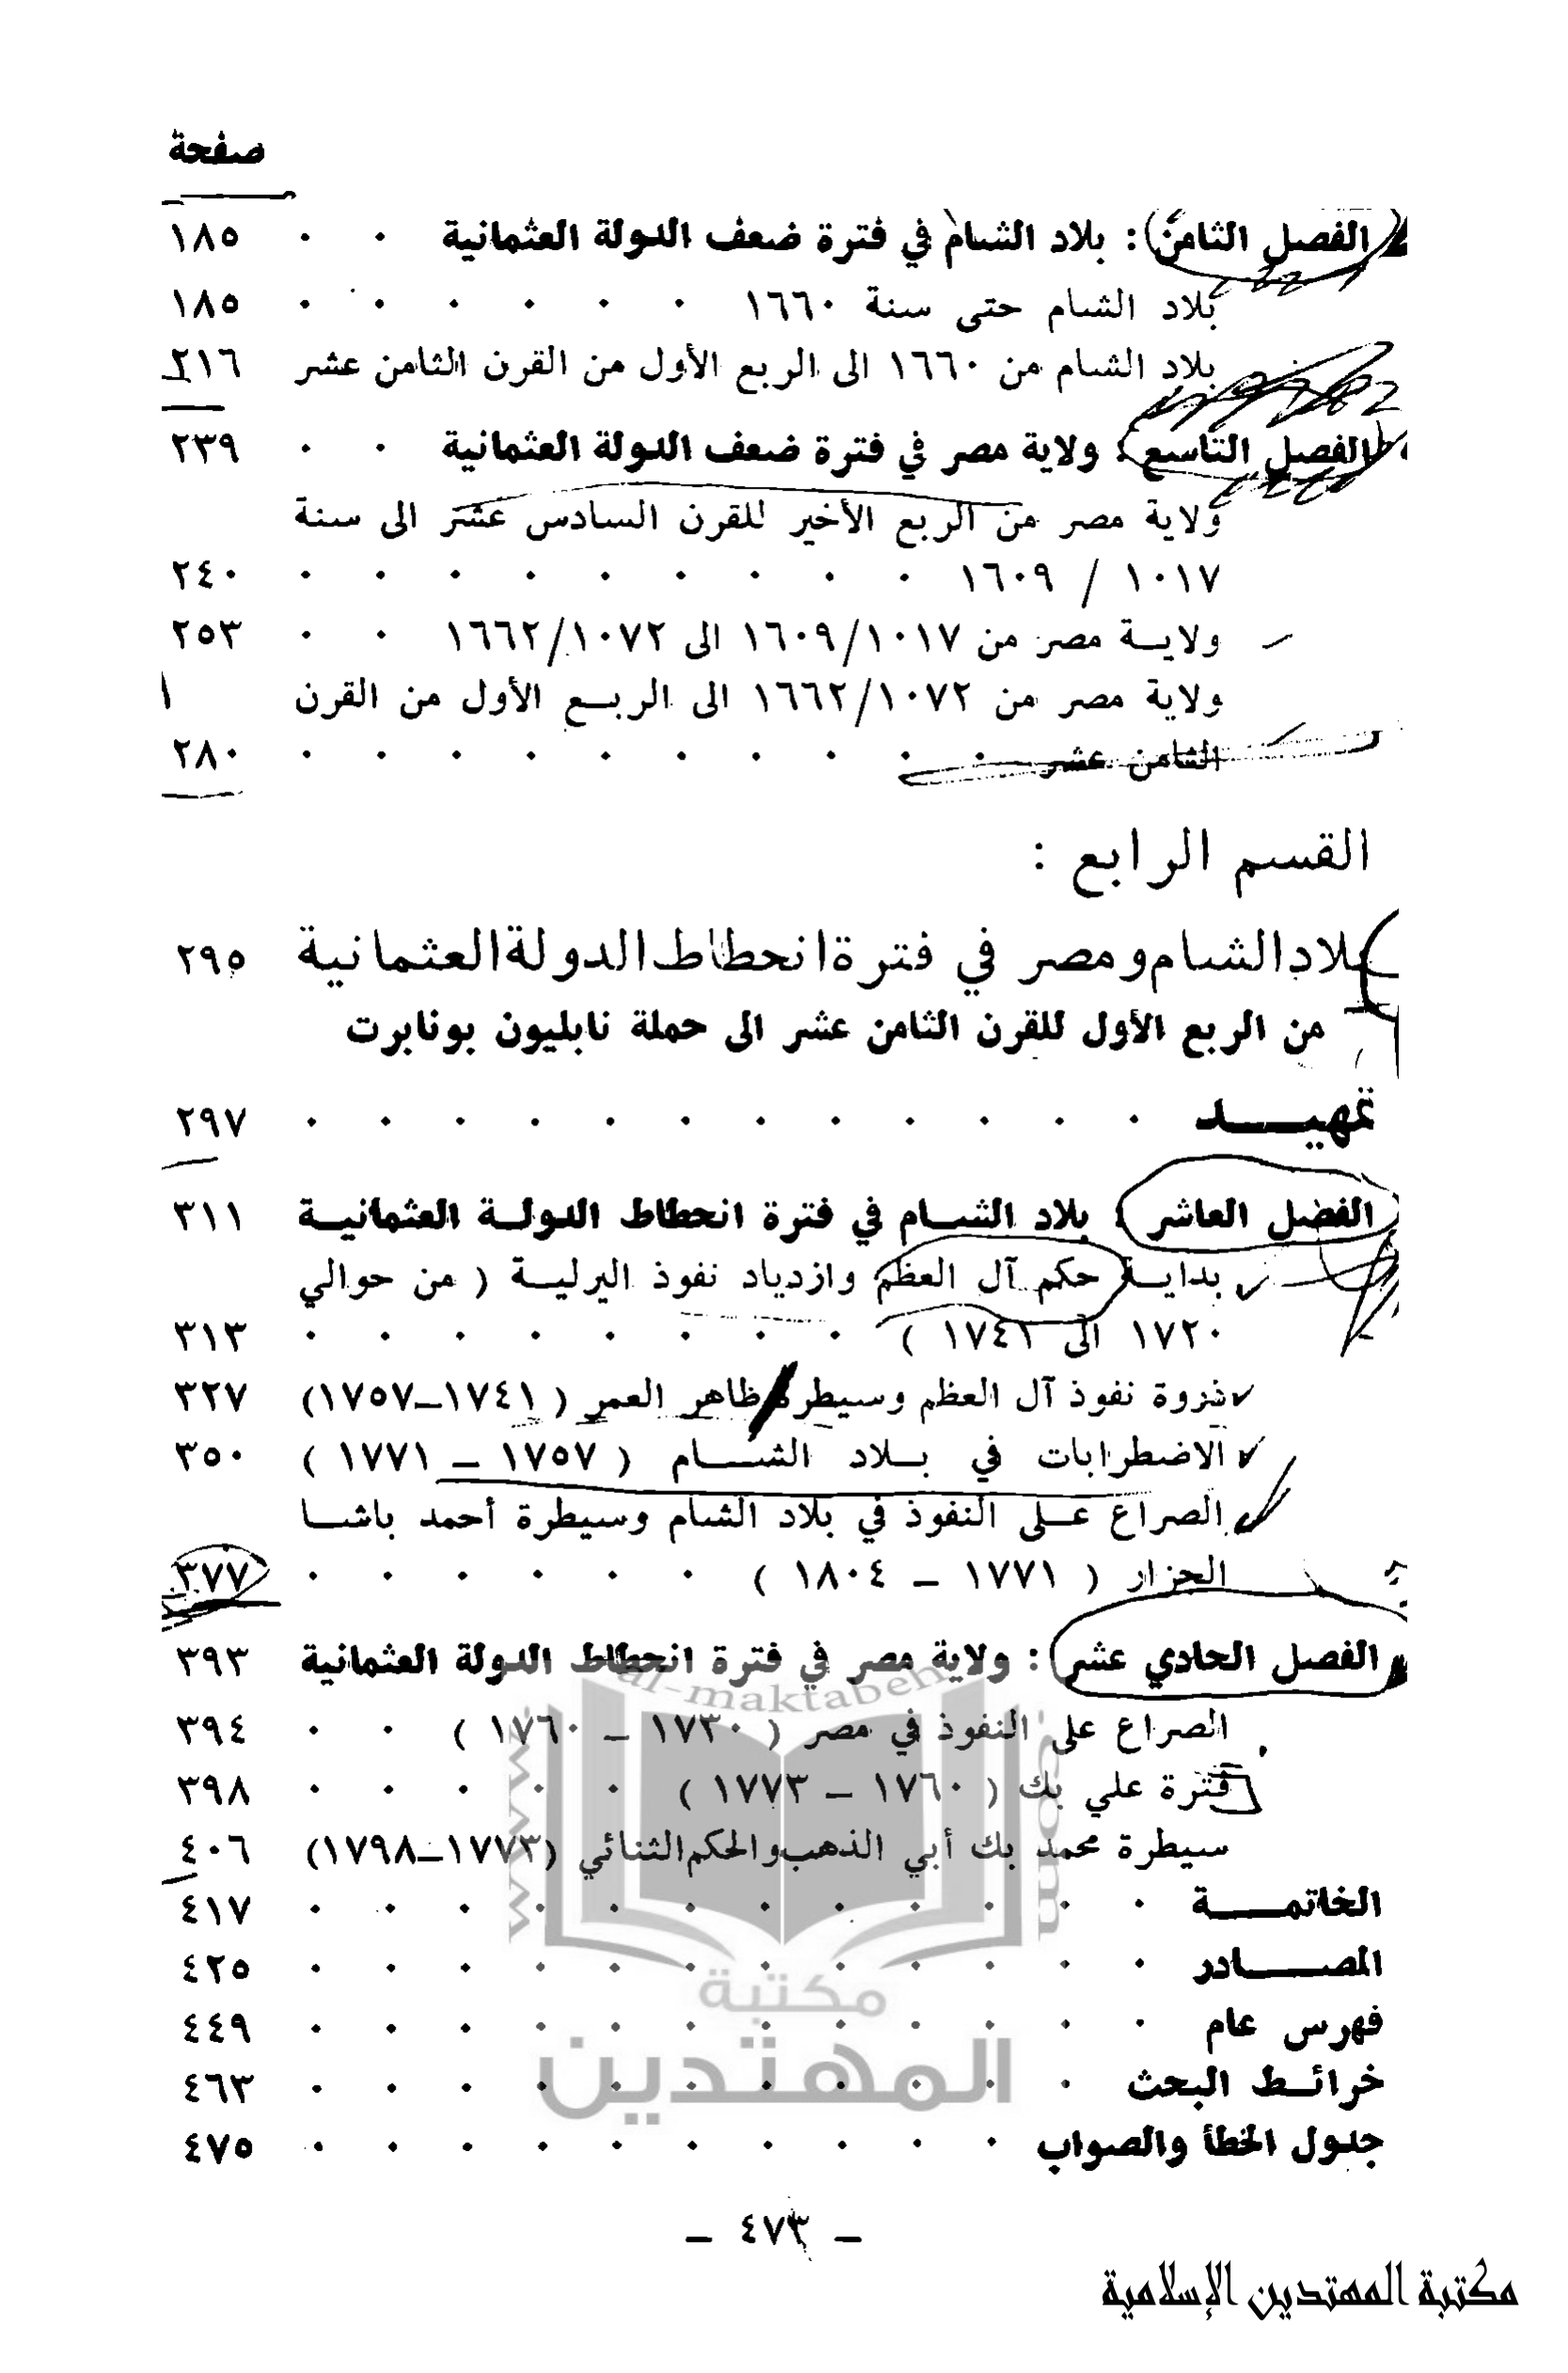 صفحة
الفصل الثامن : بلاد الشام في فترة ضعف الدولة العثمانية . . ١٨٥
بلاد الشام حتى سنة ١٦٦٠ . . . . . . ١٨٥
بلاد الشام من ١٦٦٠ الى الربع الأول من القرن الثامن عشر ٢١٦
الفصل التاسع : ولاية مصر في فترة ضعف الدولة العثمانية . . ٢٣٩
ولاية مصر من الربع الأخير للقرن السادس عشر الى سنة
١٠١٧ / ١٦٠٩ . . . . . . . . . ٢٤٠
ولايـة مصر من ١٦٠٩/١٠١٧ الى ١٦٦٢/١٠٧٢ . . ٢٥٣
ولاية مصر من ١٦٦٢/١٠٧٢ الى الربـع الأول من القرن
الثامن عشر . . . . . . . . . . ٢٨٠
القسم الرابع :
بلاد الشام ومصر في فترة انحطاط الدولة العثمانية ٢٩٥
من الربع الأول للقرن الثامن عشر الى حملة نابليون بونابرت
تمهيـــد . . . . . . . . . . . . ٢٩٧
الفصل العاشر : بلاد الشـام في فترة انحطاط الدولـة العثمانيـة ٣١١
بدايـة حكم آل العظم وازدياد نفوذ اليرليـة ( من حوالي
١٧٢٠ الى ١٧٤١ ) . . . . . . . . ٣١٣
ذروة نفوذ آل العظم وسيطرة ظاهر العمر ( ١٧٤١–١٧٥٧) ٣٢٧
الاضطرابات في بـلاد الشـام ( ١٧٥٧ – ١٧٧١ ) ٣٥٠
الصراع عـلى النفوذ في بلاد الشام وسيطرة أحمد باشـا
الجزار ( ١٧٧١ – ١٨٠٤ ) . . . . . . ٣٧٧
الفصل الحادي عشر : ولاية مصر في فترة انحطاط الدولة العثمانية ٣٩٣
الصراع على النفوذ في مصر ( ١٧٣٠ – ١٧٦٠ ) . . ٣٩٤
فترة علي بك ( ١٧٦٠ – ١٧٧٣ ) . . . . . ٣٩٨
سيطرة محمد بك أبي الذهب والحكم الثنائي (١٧٧٣–١٧٩٨) ٤٠٦
الخاتمـــة . . . . . . . . . . . . ٤١٧
المصـــادر . . . . . . . . . . . . ٤٢٥
فهرس عام . . . . . . . . . . . . ٤٤٩
خرائـط البحث . . . . . . . . . . . ٤٦٣
جدول الخطأ والصواب . . . . . . . . . . ٤٧٥
al-maktabeh
www.
.com
مكتبة
المهتدين
– ٤٧٣ –
مكتبة المهتدين الإسلامية